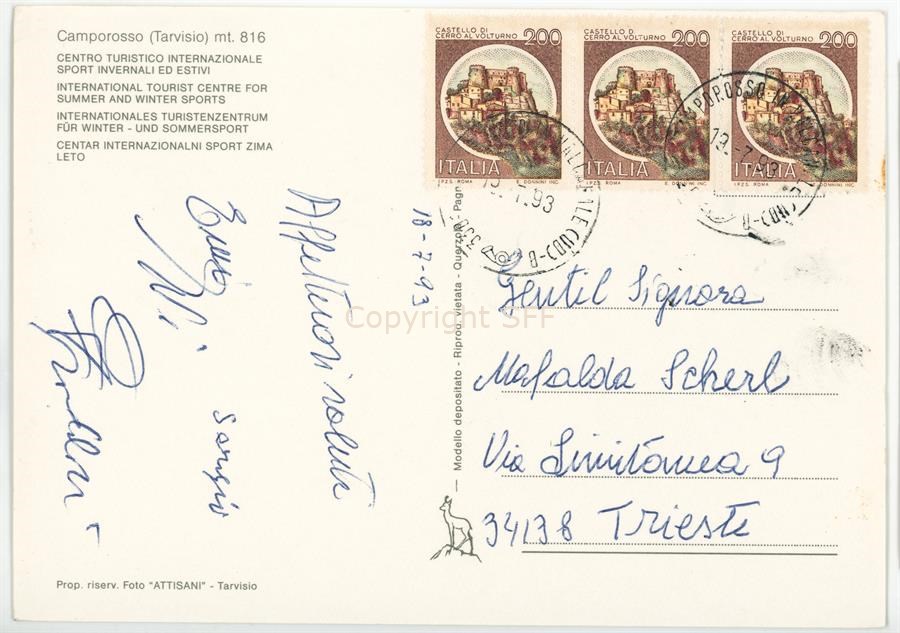 Camporosso (Tarvisio) mt. 816
CENTRO TURISTICO INTERNAZIONALE
SPORT INVERNALI ED ESTIVI
INTERNATIONAL TOURIST CENTRE FOR
SUMMER AND WINTER SPORTS
INTERNATIONALES TURISTENZENTRUM
FÜR WINTER - UND SOMMERSPORT
CENTAR INTERNACIONALNI SPORT ZIMA
LETO
CASTELLO DI
CERRO AL VOLTURNO 200
ITALIA
I.P.Z.S. ROMA E. DONNINI INC.
CASTELLO DI
CERRO AL VOLTURNO 200
ITALIA
I.P.Z.S. ROMA E. DONNINI INC.
CASTELLO DI
CERRO AL VOLTURNO 200
ITALIA
I.P.Z.S. ROMA E. DONNINI INC.
18-7-93
Affettuosi saluti
Sergio
Modello depositato - Riprod. vietata - Querzola
Gentil Signora
Mafalda Scherl
Via
9
34138 Trieste
Prop. riserv. Foto "ATTISANI" - Tarvisio
Copyright SFF